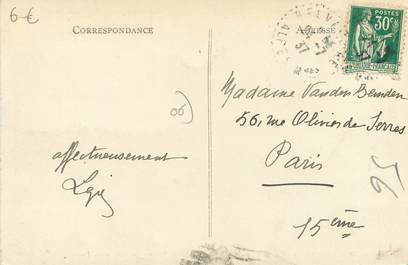 6 €
CORRESPONDANCE
ADRESSE
POSTES
30c
06
Madame Vanden Bemden
56, rue Olivier de Serres
Paris
15ème
affectueusement